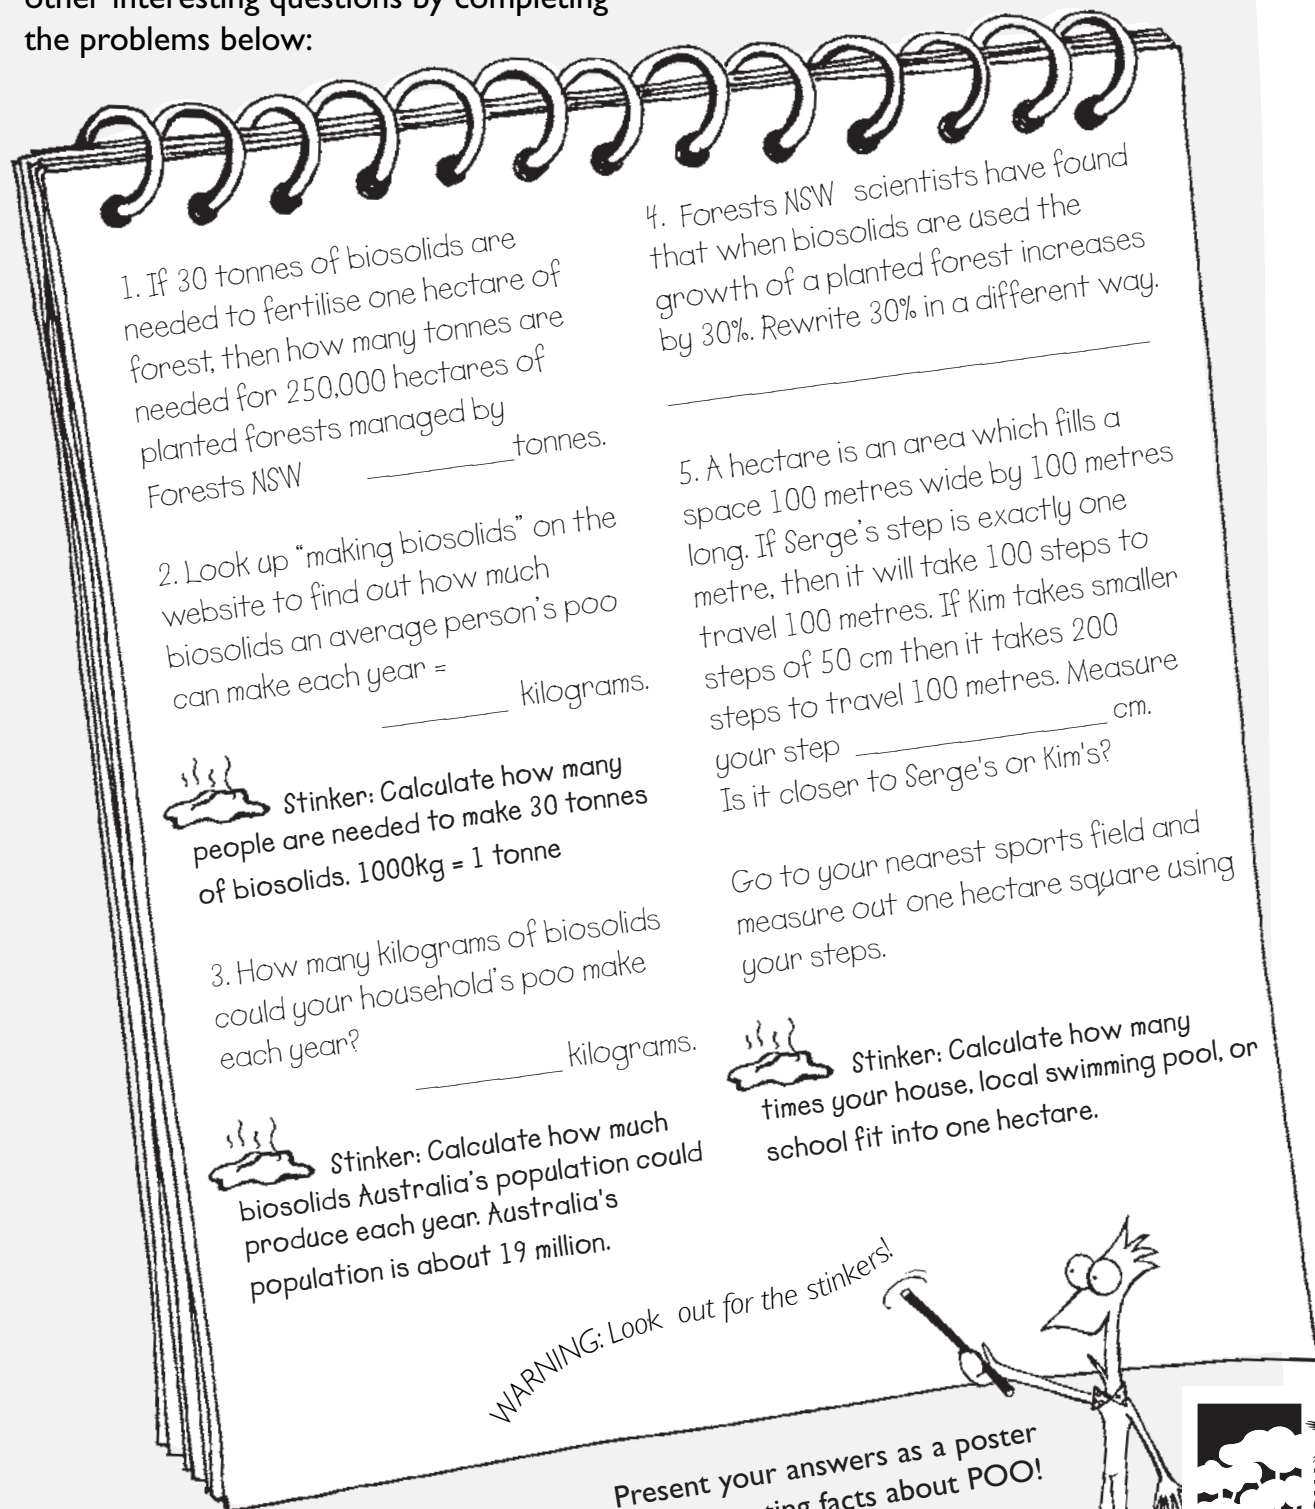 other interesting questions by completing
the problems below:
1. If 30 tonnes of biosolids are
needed to fertilise one hectare of
forest, then how many tonnes are
needed for 250,000 hectares of
planted forests managed by
Forests NSW ________tonnes.
2. Look up “making biosolids” on the
website to find out how much
biosolids an average person’s poo
can make each year =
________ kilograms.
Stinker: Calculate how many
people are needed to make 30 tonnes
of biosolids. 1000kg = 1 tonne
3. How many kilograms of biosolids
could your household’s poo make
each year?
________ kilograms.
Stinker: Calculate how much
biosolids Australia’s population could
produce each year. Australia's
population is about 19 million.
4. Forests NSW scientists have found
that when biosolids are used the
growth of a planted forest increases
by 30%. Rewrite 30% in a different way.
5. A hectare is an area which fills a
space 100 metres wide by 100 metres
long. If Serge’s step is exactly one
metre, then it will take 100 steps to
travel 100 metres. If Kim takes smaller
steps of 50 cm then it takes 200
steps to travel 100 metres. Measure
your step ________ cm.
Is it closer to Serge's or Kim's?
Go to your nearest sports field and
measure out one hectare square using
your steps.
Stinker: Calculate how many
times your house, local swimming pool, or
school fit into one hectare.
WARNING: Look out for the stinkers!
Present your answers as a poster
facts about POO!